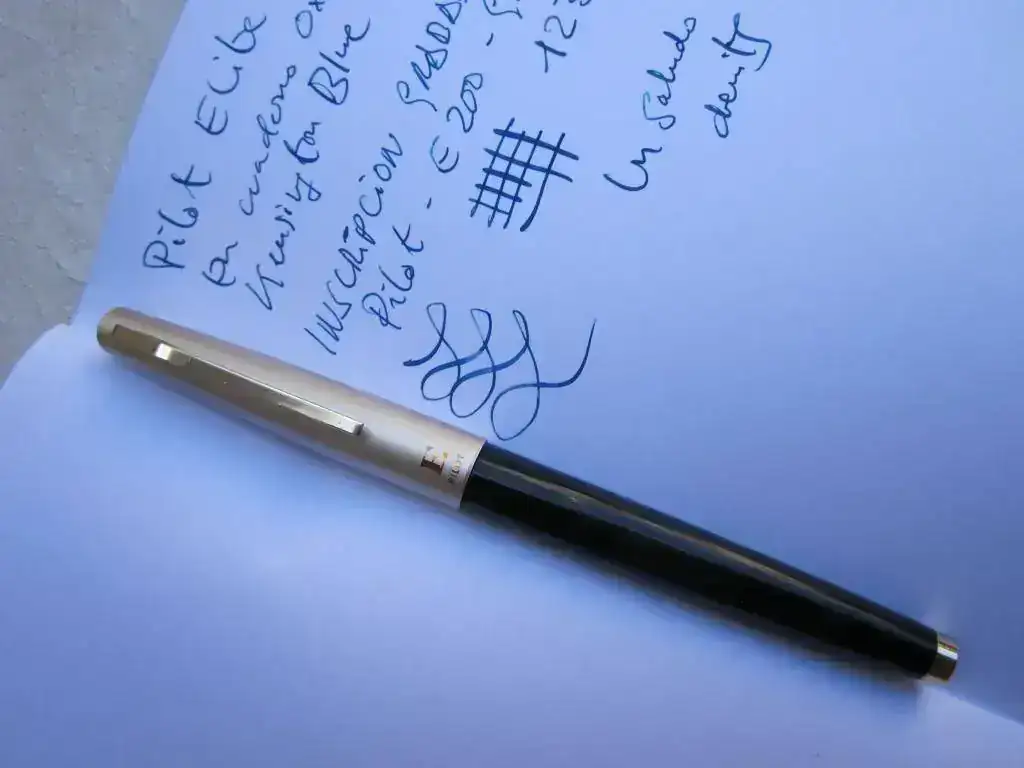 Pilot Elite
en cuaderno Ox
Kensington Blue
INSCRIPCION GRABAD
Pilot - E 200 -
123
Un saludo
density
E
PILOT